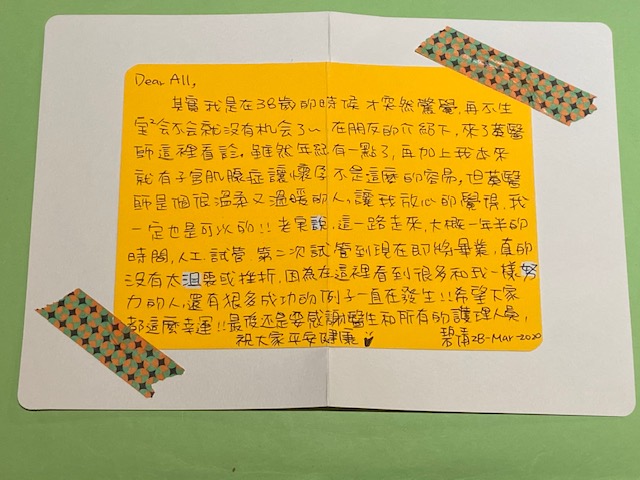 Dear All,
其實我是在38歲的時候才突然驚覺,再不生
寶²會不會就沒有机会了~ 在朋友的介紹下,來了葉醫
師這裡看診。雖然年紀有一點了,再加上我本來
就有子宮肌腺症讓懷孕不是這麼的容易,但葉醫
師是個很溫柔又溫暖的人,讓我放心的覺得,我
一定也是可以的!! 老實說,這一路走來,大概一年半的
時間,人工.試管.第二次試管到現在即將畢業,真的
沒有太沮喪或挫折,因為在這裡看到很多和我一樣努
力的人,還有很多成功的例子一直在發生!!希望大家
都這麼幸運!!最後還是要感謝醫生和所有的護理人員,
祝大家平安健康 碧青28-Mar-2020